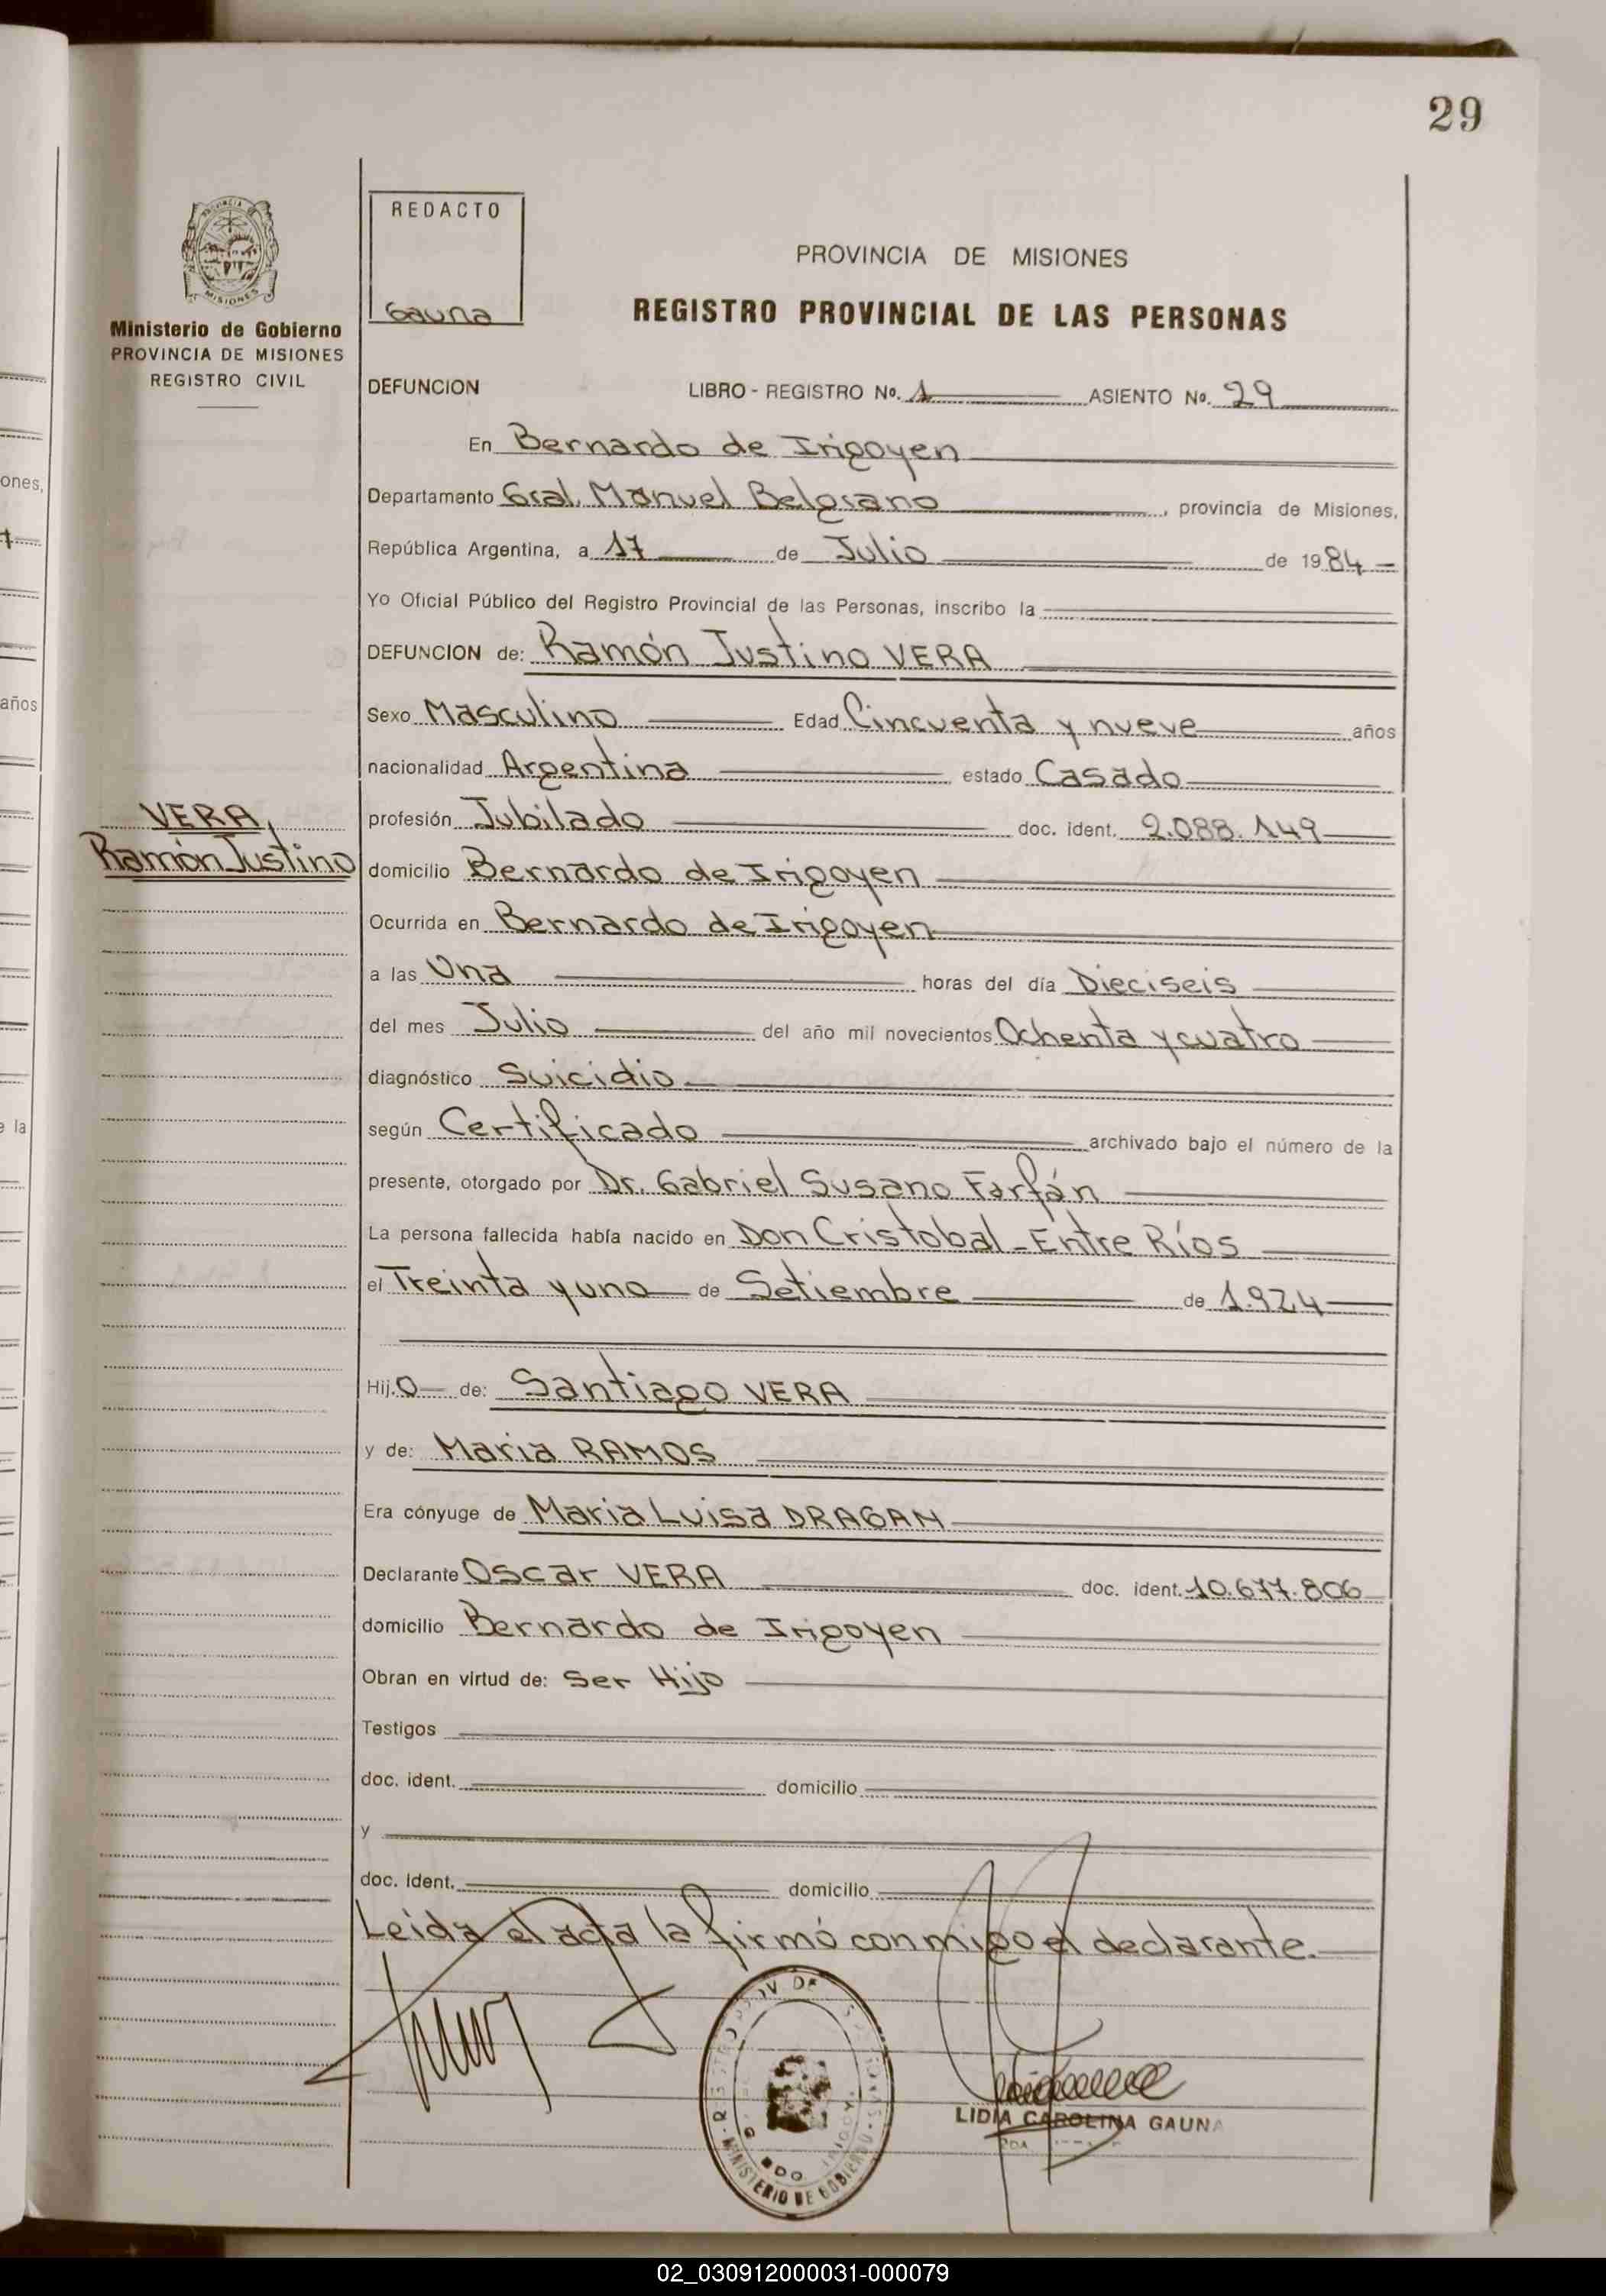 29
REDACTO
Gauna
PROVINCIA DE MISIONES
REGISTRO PROVINCIAL DE LAS PERSONAS
MISIONES
Ministerio de Gobierno
PROVINCIA DE MISIONES
REGISTRO CIVIL
DEFUNCION LIBRO - REGISTRO No. 1 ASIENTO No. 29
En Bernardo de Irigoyen
ones,
Departamento Gral. Manuel Belgrano, provincia de Misiones,
República Argentina, a 17 de Julio de 1984
Yo Oficial Público del Registro Provincial de las Personas, inscribo la
DEFUNCION de: Ramón Justino VERA
años
Sexo Masculino Edad Cincuenta y nueve años
nacionalidad Argentina estado Casado
VERA,
Ramón Justino
profesión Jubilado doc. ident. 2.088.149
domicilio Bernardo de Irigoyen
Ocurrida en Bernardo de Irigoyen
a las Una horas del día Dieciseis
del mes Julio del año mil novecientos Ochenta y cuatro
diagnóstico Suicidio
la
según Certificado archivado bajo el número de la
presente, otorgado por Dr. Gabriel Susano Farfán
La persona fallecida había nacido en Don Cristobal - Entre Ríos
el Treinta y uno de Setiembre de 1.924
Hij.o de: Santiago VERA
y de: Maria RAMOS
Era cónyuge de Maria Luisa DRAGAN
Declarante Oscar VERA doc. ident. 10.677.806
domicilio Bernardo de Irigoyen
Obran en virtud de: Ser Hijo
Testigos
doc. ident. domicilio
y
doc. ident. domicilio
Leída el acta la firmó conmigo el declarante.
MINISTERIO DE GOBIERNO
LIDIA CAROLINA GAUNA
02_030912000031-000079